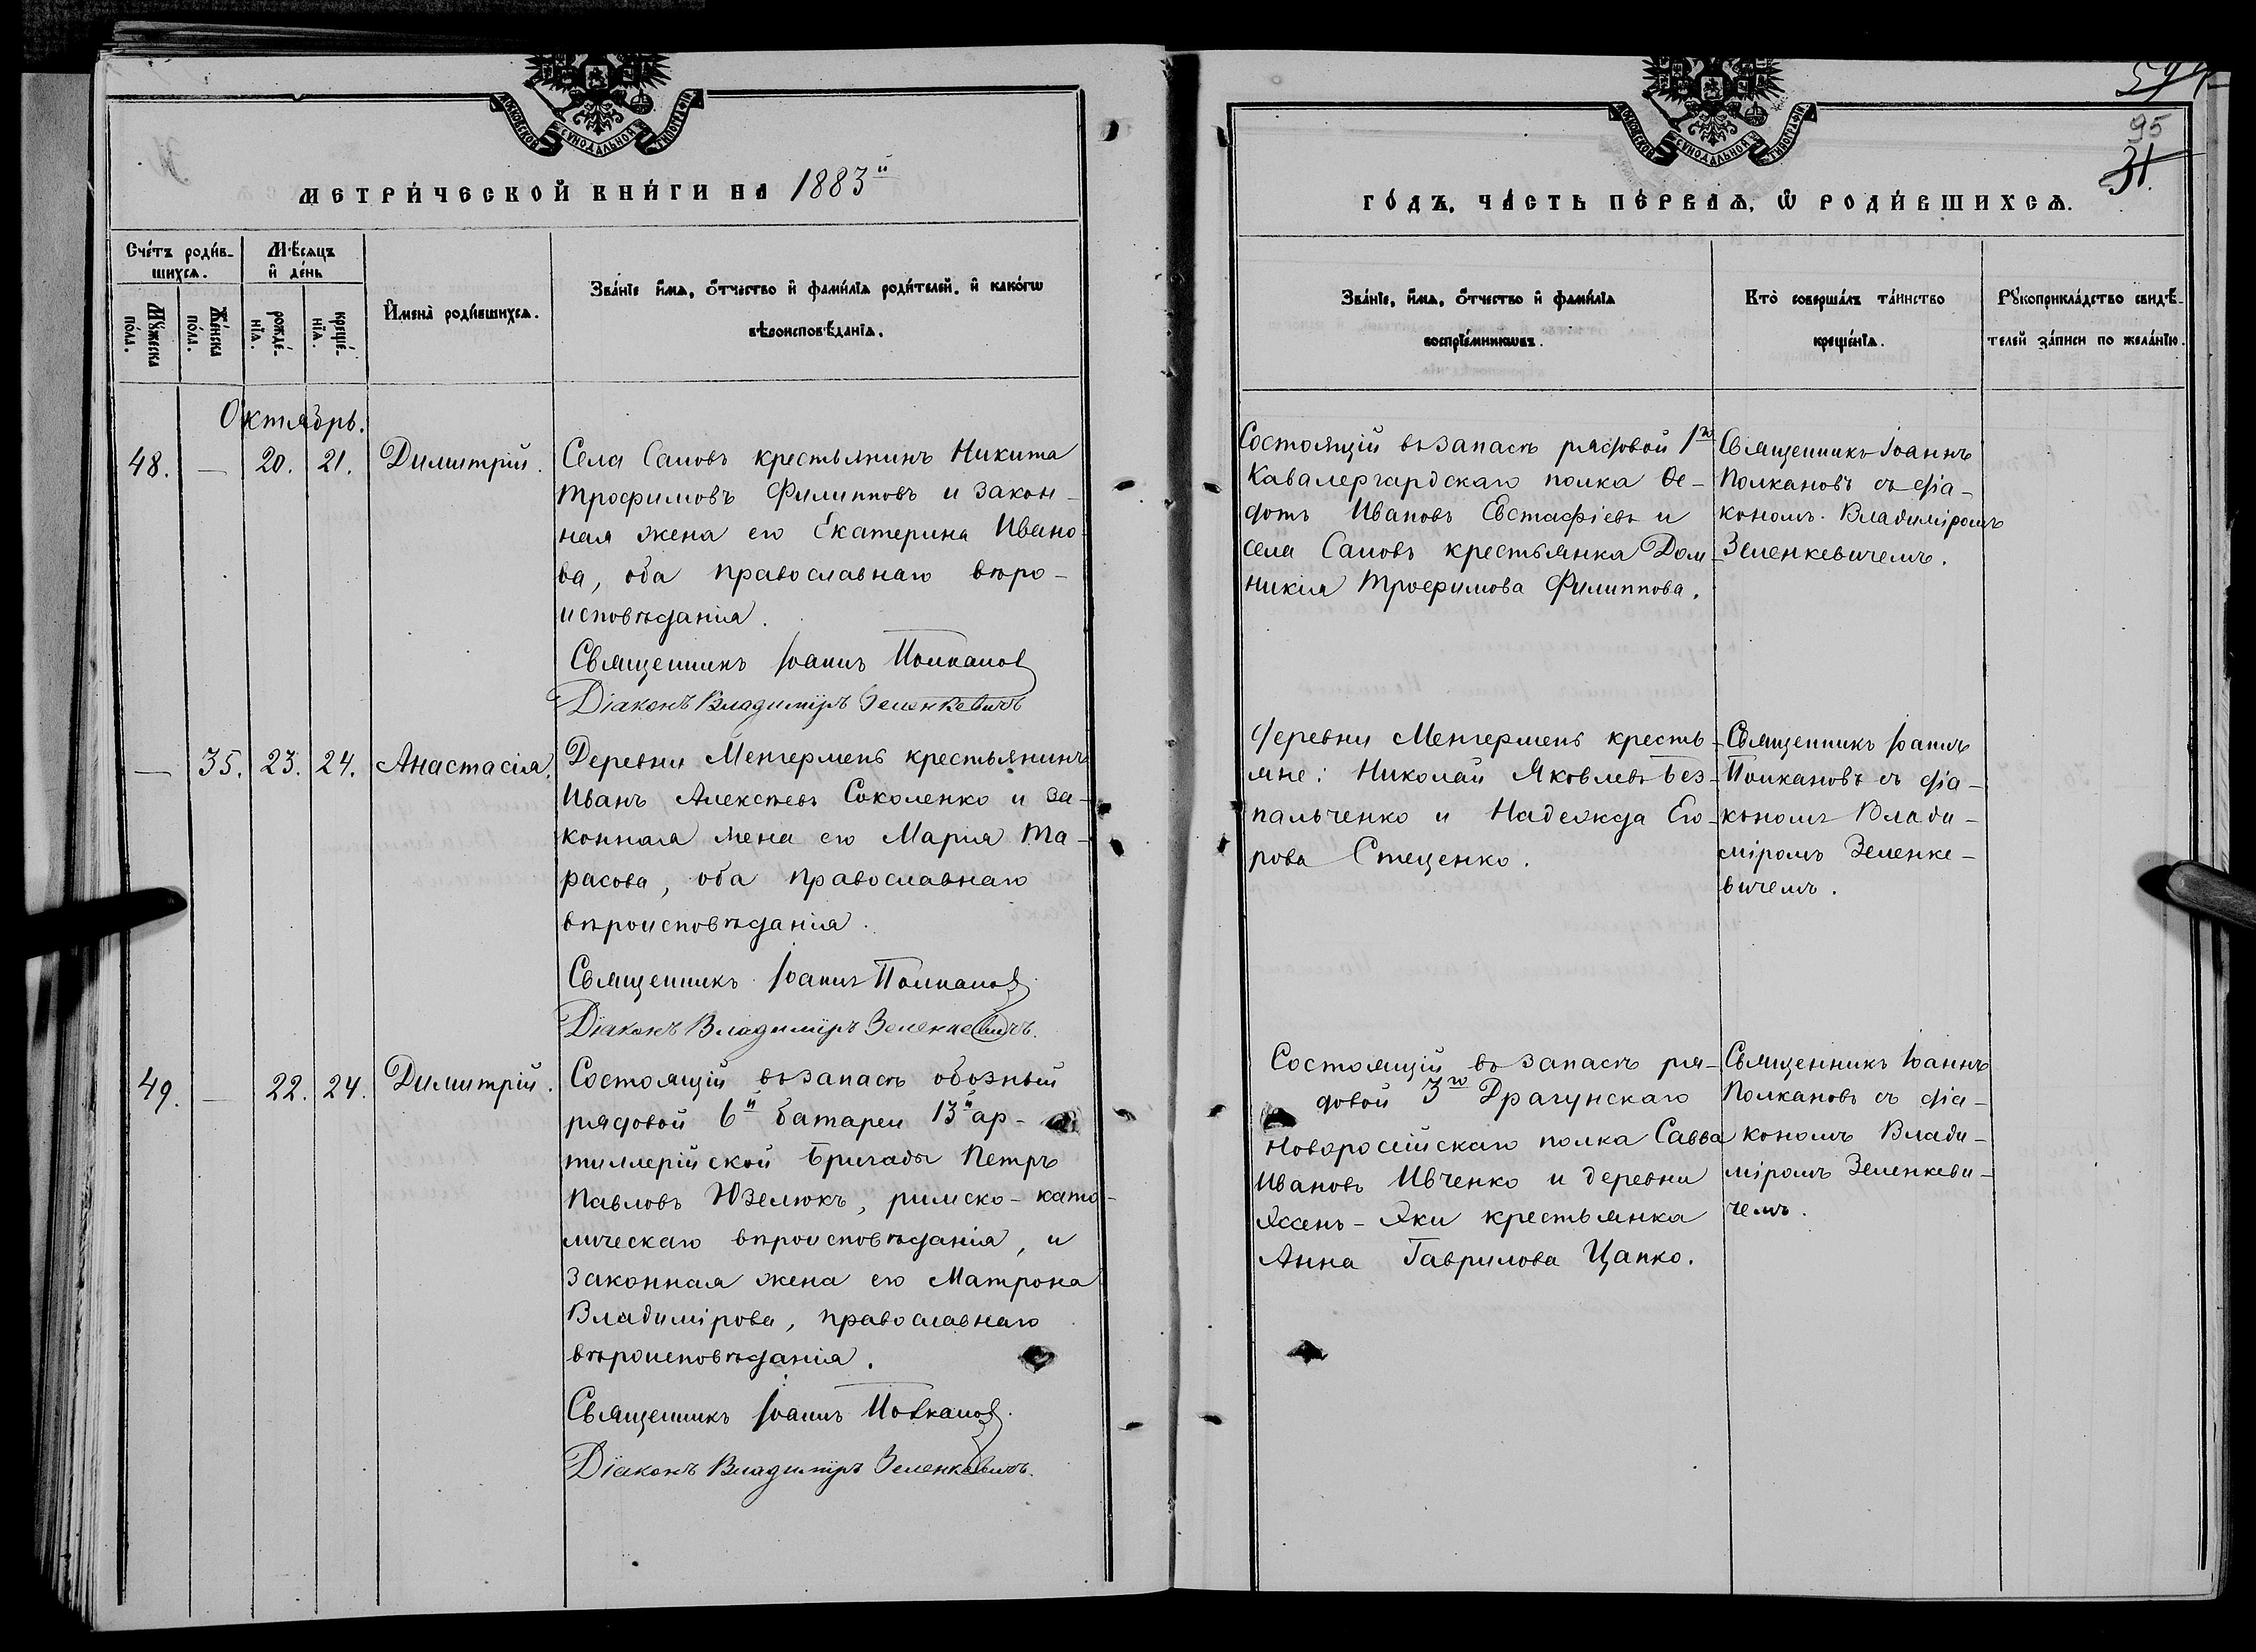 МОСКОВСКОЙ СѴНОДАЛЬНОЙ ТИПОГРАФІИ
МЕТРИ́ЧЕСКОЙ КНИ́ГИ НА 1883й
Сче́тъ роди́в-
шихсѧ.
Мѣ́сѧцъ
и҆ де́нь
Мꙋ́жеска
по́ла.
Же́нска
по́ла.
рожде́-
нїѧ.
креще́-
нїѧ.
И҆мена̀ роди́вшихсѧ.
Зва́нїе и҆́мѧ, ѻ҆́тчество и҆ фами́лїѧ роди́телей, и҆ како́гѡ
вѣроисповѣ́данїѧ.
Октябрь.
48. — 20. 21. Димитрій.
Села Саловъ крестьянинъ Никита
Трофимовъ Филипповъ и закон-
ная жена его Екатерина Ивано-
ва, оба православнаго вѣро-
исповѣданія.
Священникъ Іоаннъ Полкановъ
Діаконъ Владиміръ Зеленкевичъ
— 35. 23. 24. Анастасія.
Деревни Менгерменъ крестьянинъ
Иванъ Алексѣевъ Соколенко и за-
конная жена его Марія Та-
расова, оба православнаго
вѣроисповѣданія.
Священникъ Іоаннъ Полкановъ
Діаконъ Владиміръ Зеленкевичъ.
49. — 22. 24. Димитрій.
Состоящій въ запасѣ обозный
рядовой 6й батареи 13й ар-
тиллерійской бригады Петръ
Павловъ Юзелюкъ, римско-като-
лическаго вѣроисповѣданія, и
законная жена его Матрона
Владимірова, православнаго
вѣроисповѣданія.
Священникъ Іоаннъ Полкановъ.
Діаконъ Владиміръ Зеленкевичъ.
МОСКОВСКОЙ СѴНОДАЛЬНОЙ ТИПОГРАФІИ
95
31.
ГО́ДЪ, ЧА́СТЬ ПЕ́РВАѦ, Ѡ҆ РОДИ́ВШИХСѦ.
Зва́нїе, и҆́мѧ, ѻ҆́тчество и҆ фами́лїѧ
воспрїе́мникѡвъ.
Кто̀ соверша́лъ та́инство
креще́нїѧ.
Рꙋкоприкла́дство свидѣ́-
телей за́писи по жела́нїю.
Состоящій въ запасѣ рядовой 1го
Кавалергардскаго полка Ѳе-
дотъ Ивановъ Евстафіевъ и
села Саловъ крестьянка Дом-
никія Трофимова Филиппова.
Священникъ Іоаннъ
Полкановъ съ діа-
кономъ Владиміромъ
Зеленкевичемъ.
Деревни Менгерменъ кресть-
яне: Николай Яковлевъ Без-
пальченко и Надежда Его-
рова Стеценко.
Священникъ Іоаннъ
Полкановъ съ діа-
кономъ Влади-
міромъ Зеленке-
вичемъ.
Состоящій въ запасѣ ря-
довой 3го Драгунскаго
Новоросійскаго полка Савва
Ивановъ Ивченко и деревни
Яхенъ-Яки крестьянка
Анна Гаврилова Цапко.
Священникъ Іоаннъ
Полкановъ съ діа-
кономъ Влади-
міромъ Зеленкеви-
чемъ.